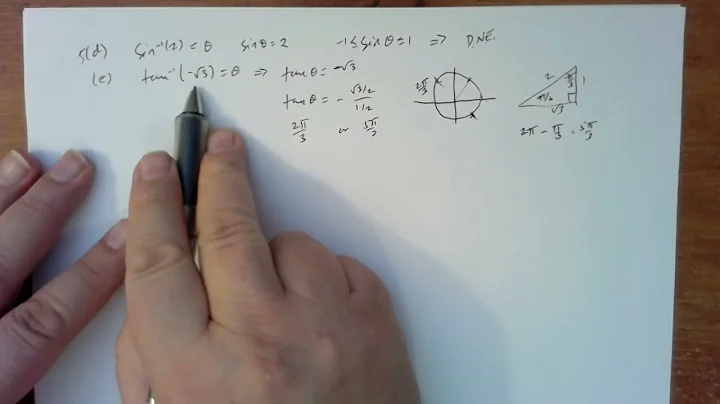 5(d) sin⁻¹(2) = θ sin θ = 2 -1 ≤ sin θ ≤ 1 ⇒ D.N.E.
(e) tan⁻¹(-√3) = θ ⇒ tan θ = -√3
tan θ = - (√3/2)/(1/2)
2π/3 or 5π/3
2π/3
2 π/3 1
π/2 √3
2π - π/3 = 5π/3